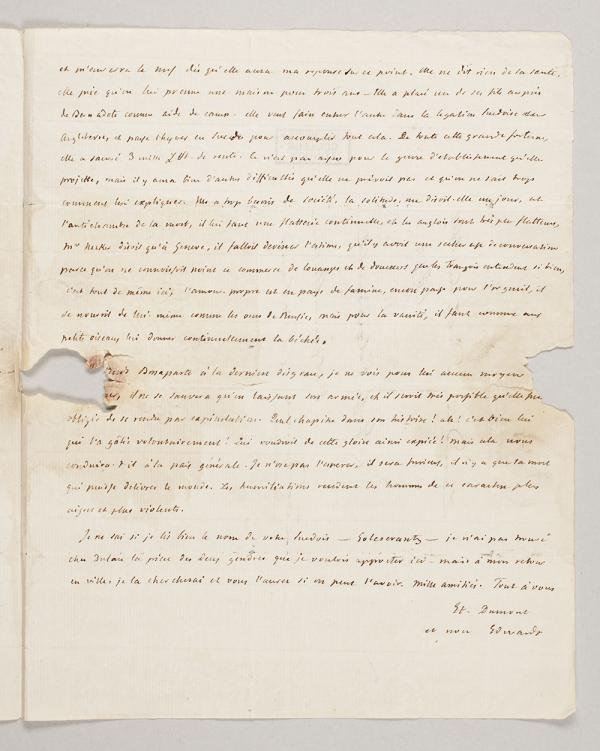 et m'enverra le neuf dès qu'elle aura ma reponse sur ce point. Elle ne dit rien de sa santé,
elle prie qu'on lui prenne une maison pour trois ans — Elle a placé un de ses fils auprès
de Bernadote comme aide de camp. elle veut faire entrer l'autre dans la legation Suedoise
Angleterre, et passe l'hyver en Suede pour accomplir tout cela. De toute cette grande fortune,
elle a sauvé 3 mille de rente. Ce n'est pas assez pour le genre d'etablissement qu'elle
projette, mais il y aura bien d'autres difficultés qu'elle ne prévoit pas et qu'on ne sait trop
comment lui expliquer. Elle a trop besoin de société, la solitude, me disoit-elle un jour, est
l'antichambre de la mort, il lui faut une flatterie continuelle, et les anglois sont très peu flatteurs,
Mr Necker disoit qu'à Geneve, il falloit deviner l'estime, qu'il y avoit une secheresse de conversation
parce qu'on ne connoissoit point ce commerce de louanges et de douceurs que les François entendent si bien,
c'est tout de même ici, l'amour propre est en pays de famine, encore passe pour l'orgueil, il
se nourrit de lui même comme les ours de Russie, mais pour la vanité, il faut comme aux
petits oiseaux lui donner continuellement la béchée,
Bonaparte à la derniere disgrace, je ne vois pour lui aucun moyen
il ne se sauvera qu'en laissant son armée, et il seroit très possible qu'elle fut
obligée de se rendre par capitulation. Quel chapitre dans son histoire! ah! c'est bien lui
qui l'a gâtée volontairement! Qui voudroit de cette gloire ainsi expiée! mais cela nous
conduira-t-il à la paix générale. Je n'ose pas l'esperer, il sera furieux, il n'y a que la mort
qui puisse délivrer le monde. Les humiliations rendent les hommes de ce caractere plus
aigres et plus violents.
Je ne sai si je lis bien le nom de votre Suedois — — je n'ai pas trouvé
chez Dulau la piece des deux gendres que je voulois apporter ici — mais à mon retour
en ville, je la chercherai et vous l'aurez si on peut l'avoir. Mille amitiés. Tout à vous
Et. Dumont
et non Edwards